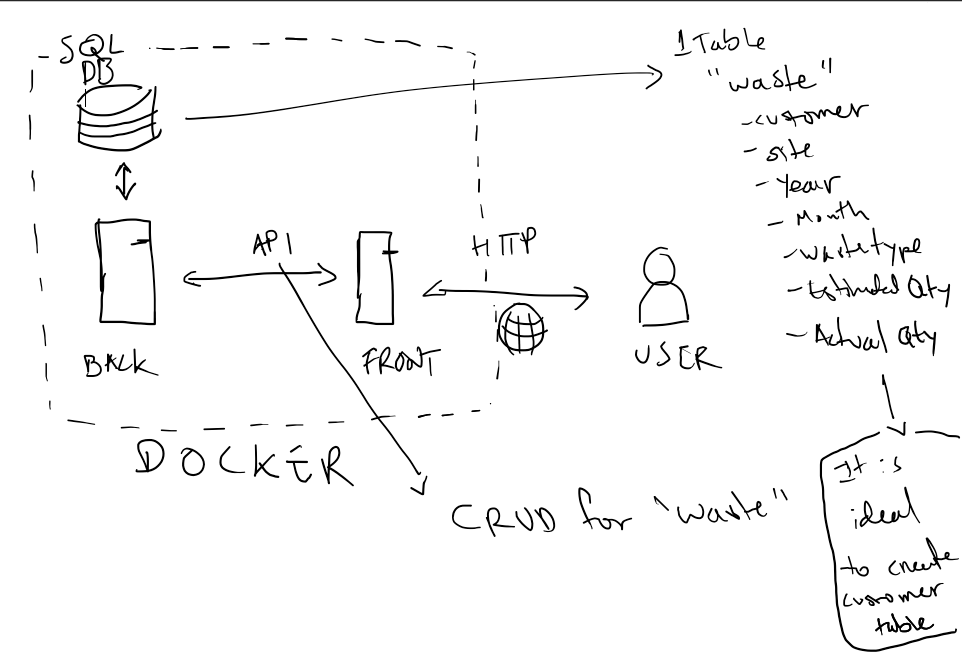 SQL
DB
BACK
API
FRONT
HTTP
USER
DOCKER
CRUD for "waste"
1 Table
"waste"
-customer
- site
- Year
- Month
- wastetype
- Estimated Qty
- Actual Qty
It is
ideal
to create
customer
table